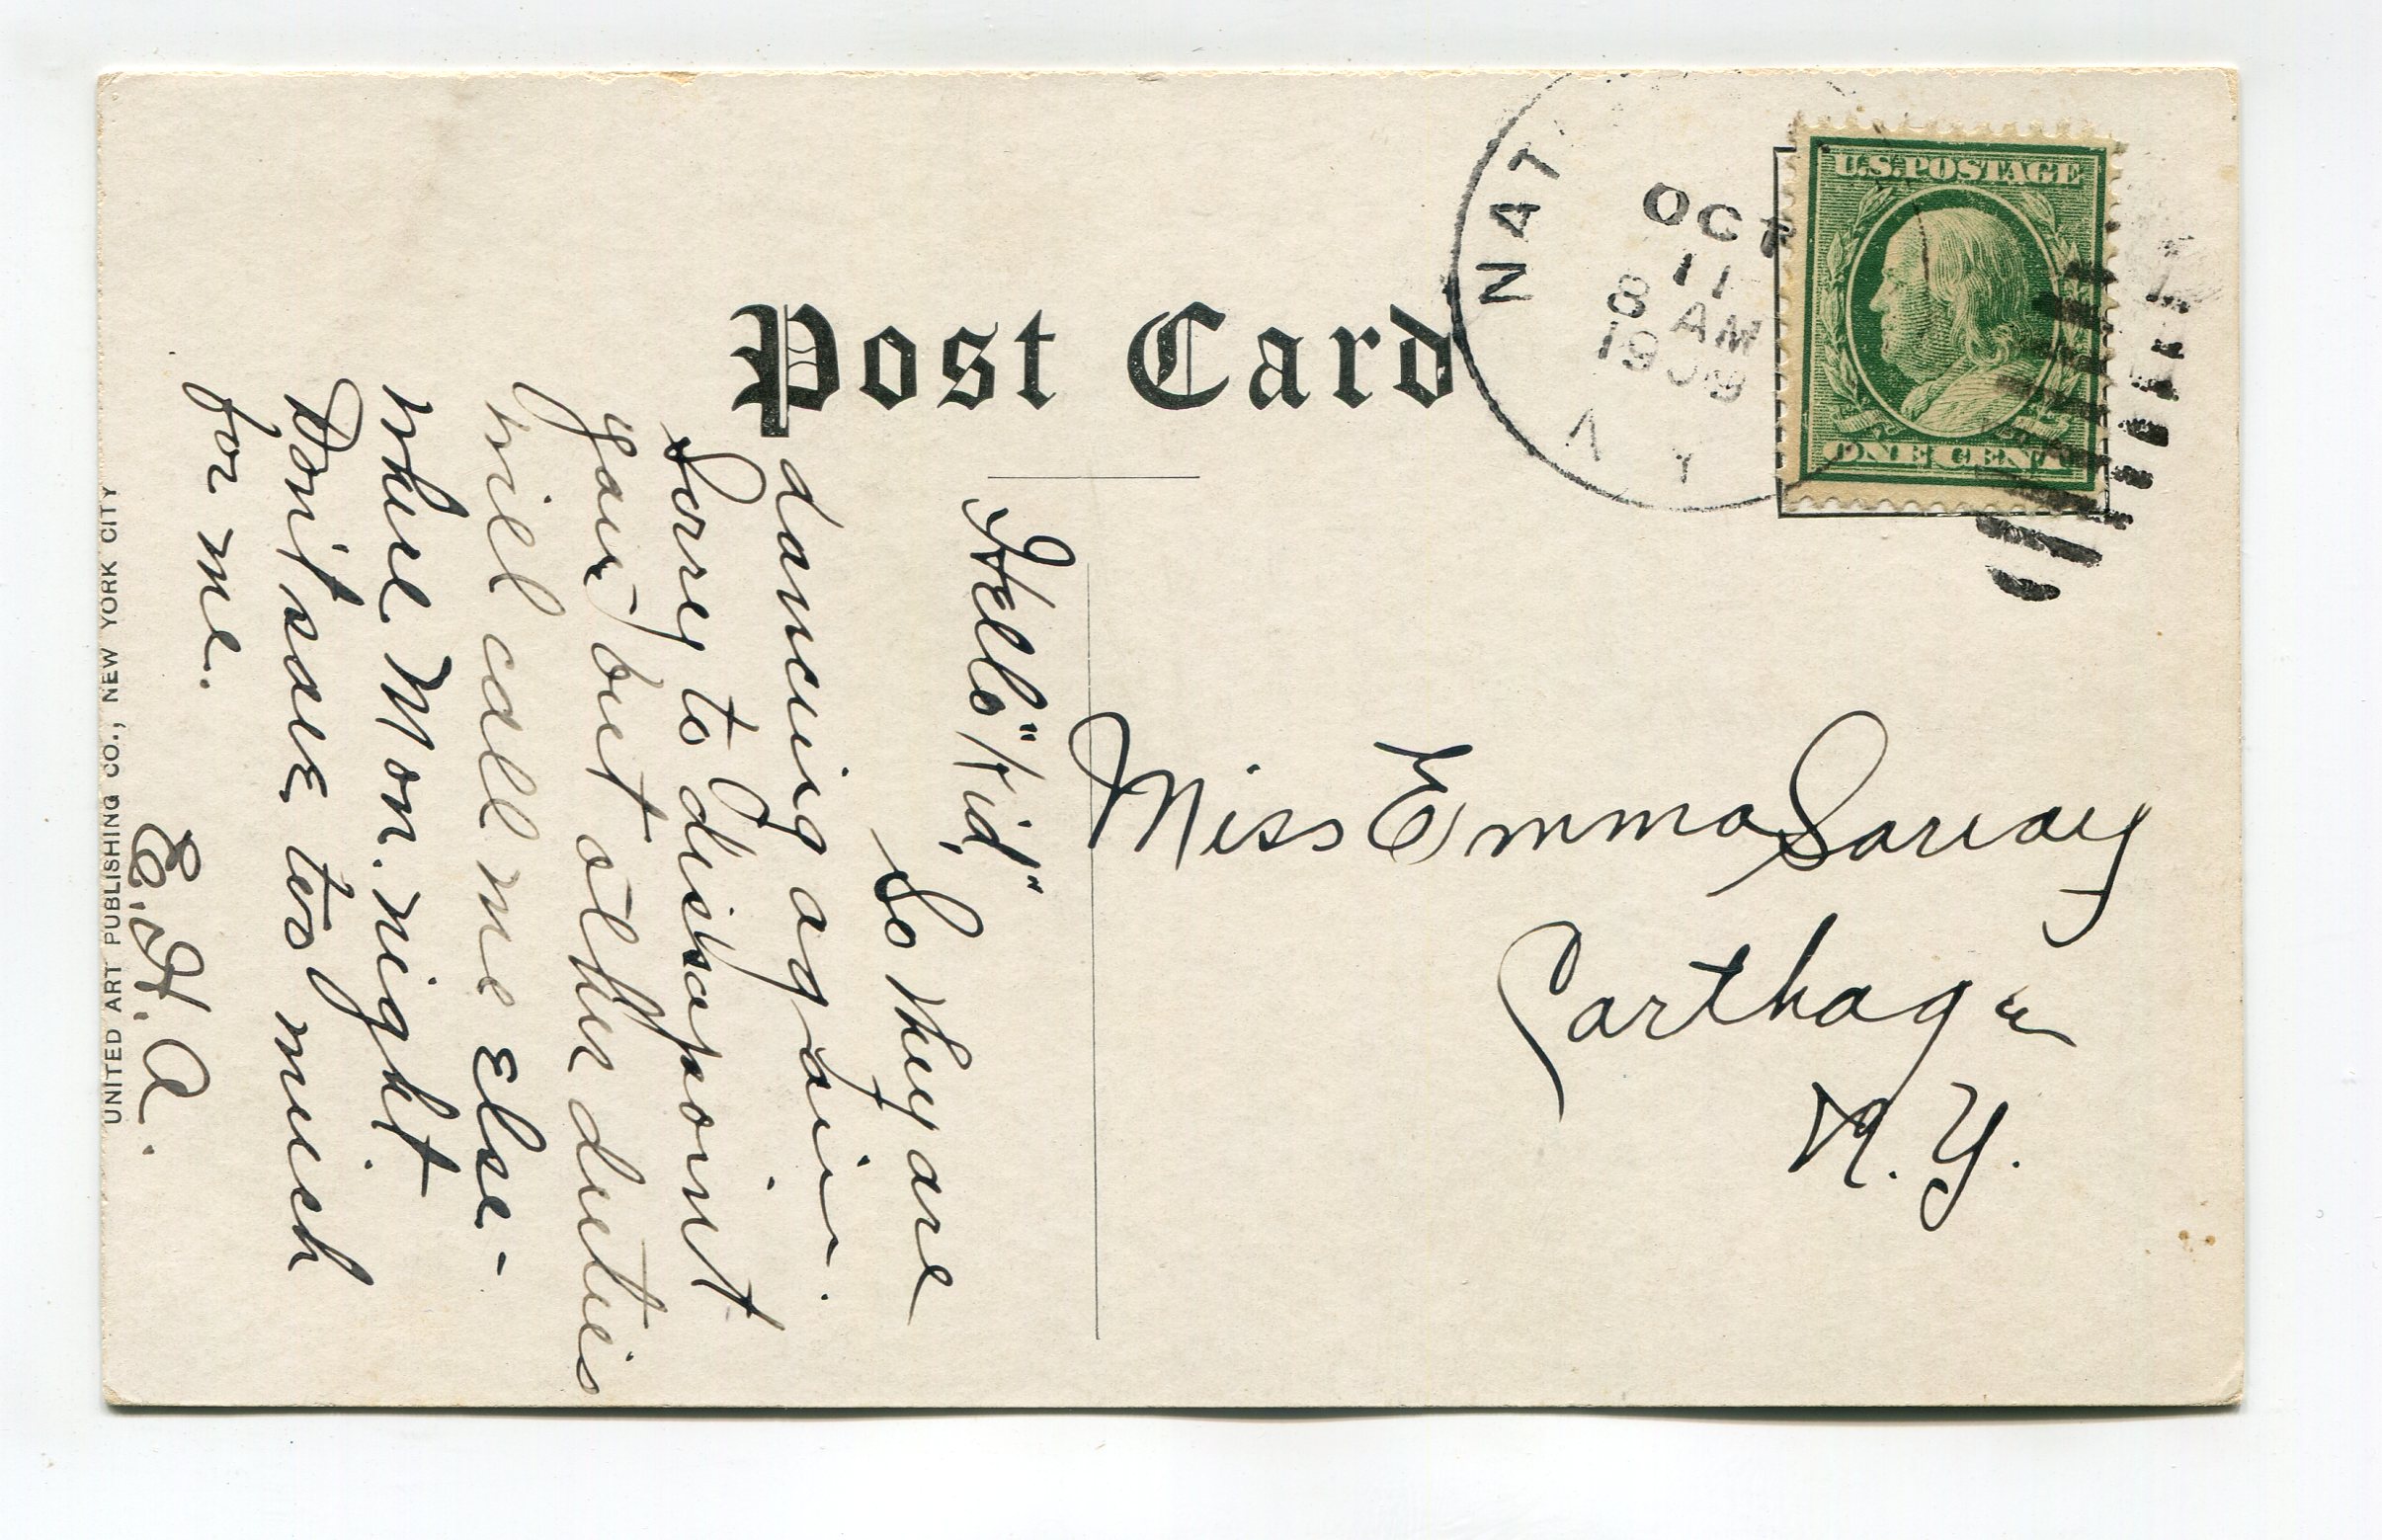 Post Card
NAT
OCT
11
8 AM
1909
N Y
U.S. POSTAGE
ONE CENT
Miss Emma
Carthage
N.Y.
Hello "Kid"
So they are
dancing again.
Sorry to dissapoint
you but other duties
will call me else-
where Mon. night
Don't save too much
for me.
E. H. A.
UNITED ART PUBLISHING CO., NEW YORK CITY